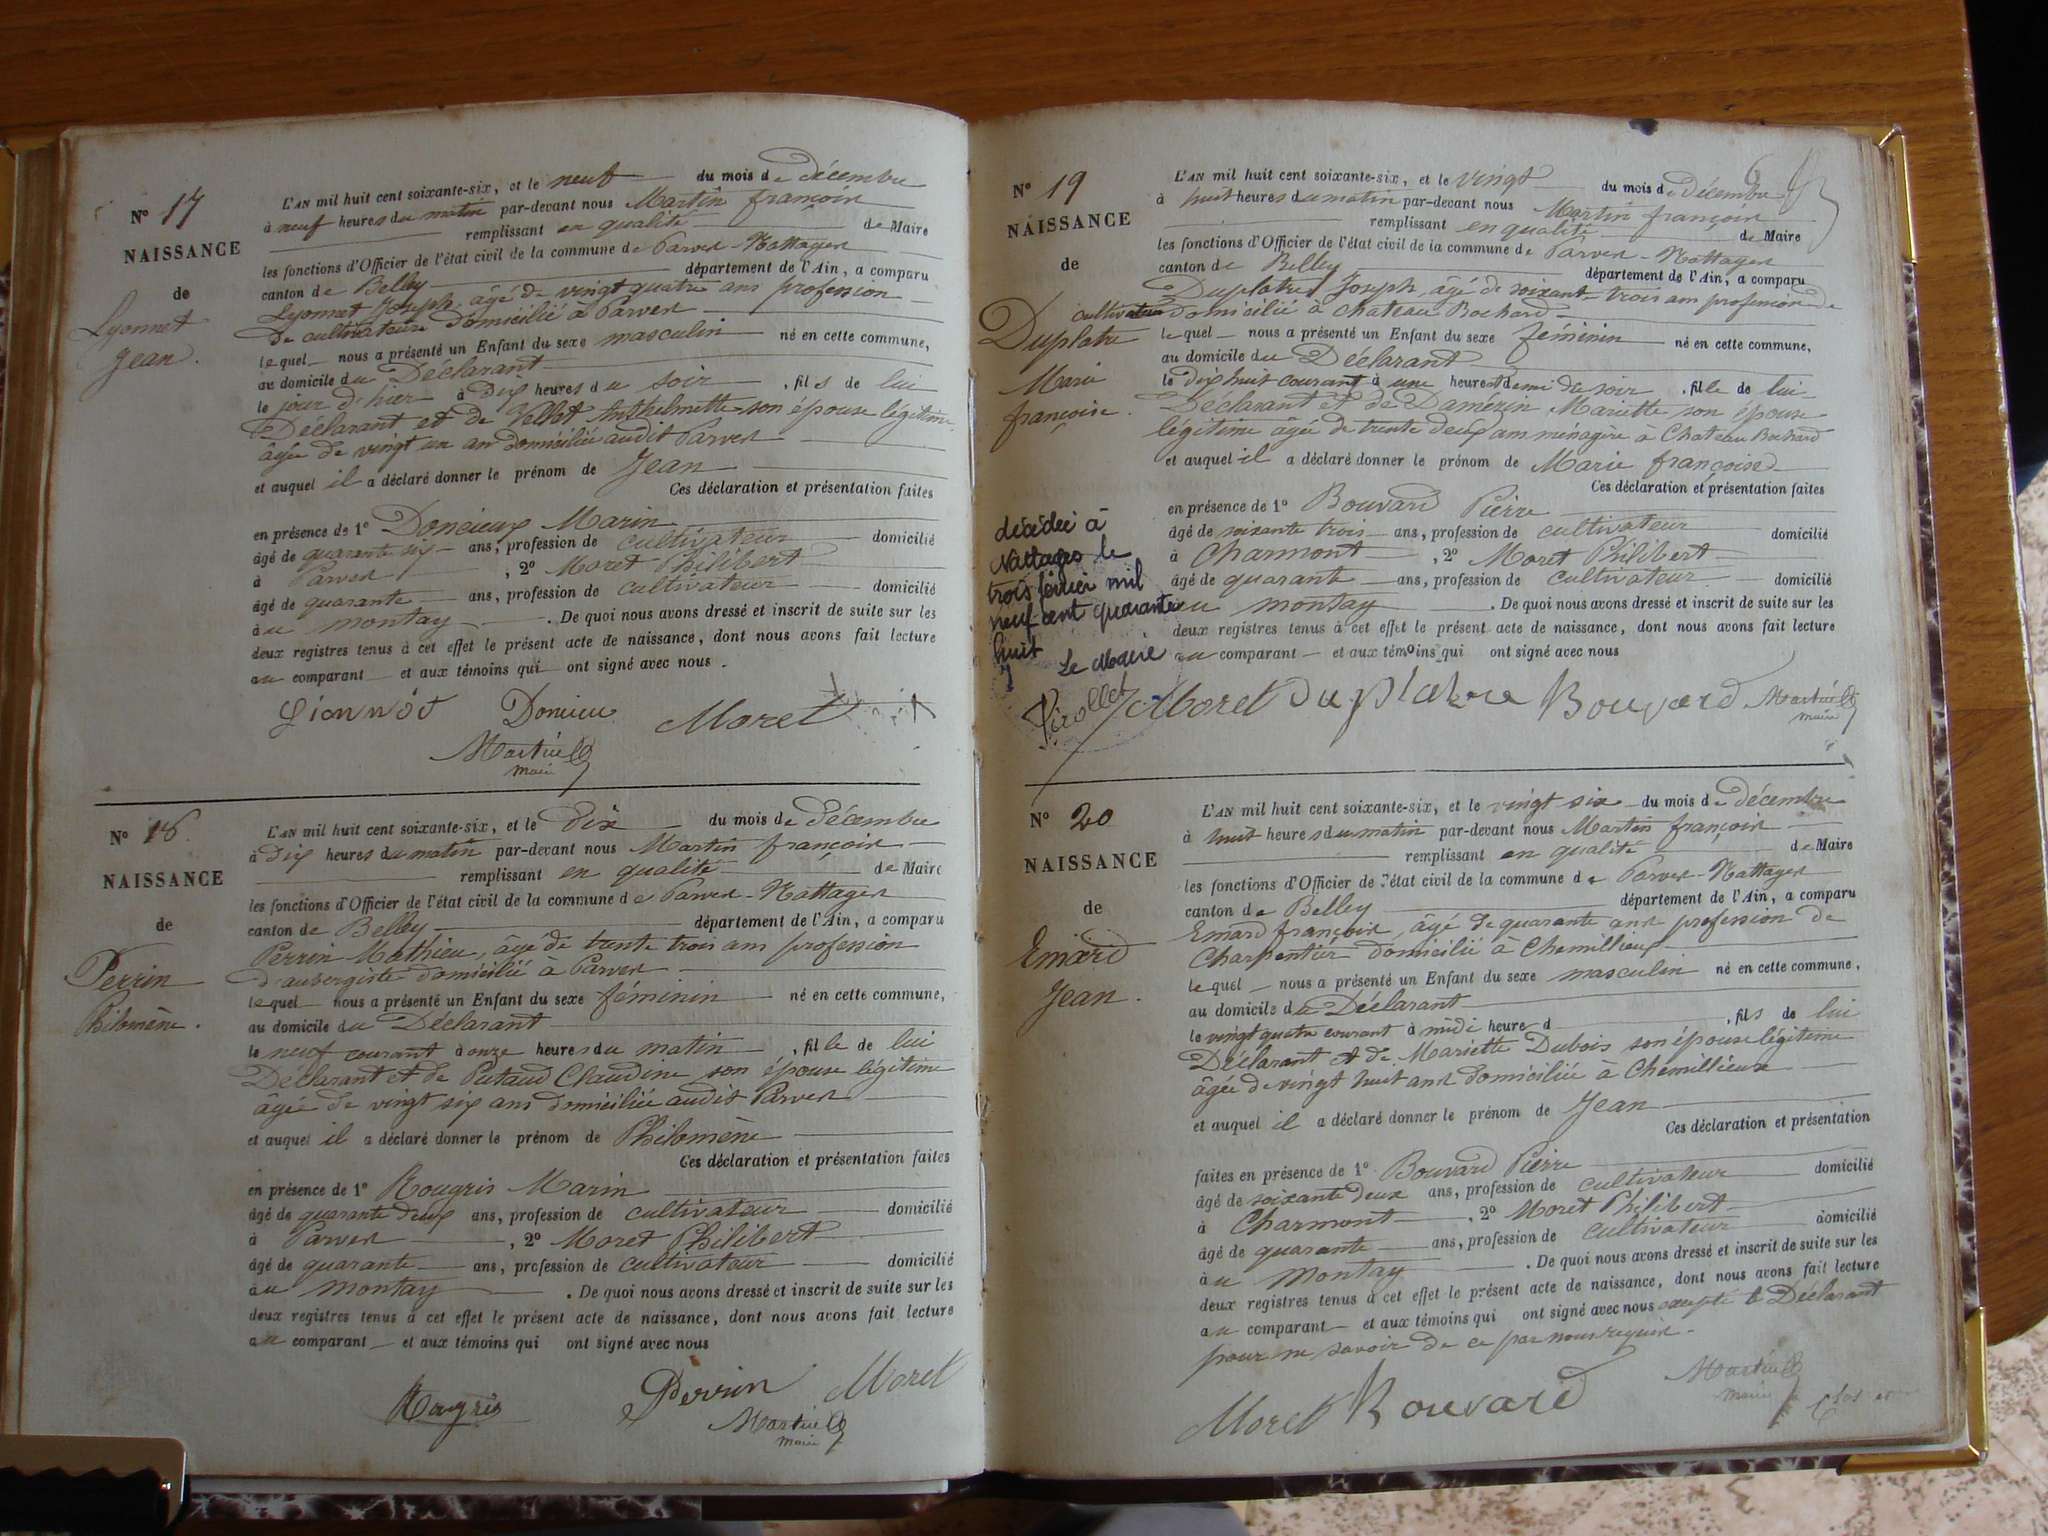 N° 17
NAISSANCE
de
Lyonnet
Jean.
L'AN mil huit cent soixante-six, et le neuf du mois de décembre
à neuf heures du matin par-devant nous Martin françois
remplissant en qualité de Maire
les fonctions d'Officier de l'état civil de la commune de Parves-Nattages
canton de Belley département de l'Ain, a comparu
Lyonnet Joseph âgé de vingt quatre ans profession
de cultivateur domicilié à Parves
lequel nous a présenté un Enfant du sexe masculin né en cette commune,
au domicile du Déclarant
le jour d'hier à dix heures du soir, fils de lui
Déclarant et de Vellet Anthelmette son épouse légitime
âgée de vingt un an domiciliée audit Parves
et auquel il a déclaré donner le prénom de Jean
Ces déclaration et présentation faites
en présence de 1° Doncieux Marin
âgé de quarante six ans, profession de cultivateur domicilié
à Parves, 2° Moret Philibert
âgé de quarante ans, profession de cultivateur domicilié
au montay. De quoi nous avons dressé et inscrit de suite sur les
deux registres tenus à cet effet le présent acte de naissance, dont nous avons fait lecture
au comparant et aux témoins qui ont signé avec nous.
Lionnot Doncieu Moret
Martin
maire
N° 18
NAISSANCE
de
Perrin
Philomène.
L'AN mil huit cent soixante-six, et le dix du mois de décembre
à dix heures du matin par-devant nous Martin françois
remplissant en qualité de Maire
les fonctions d'Officier de l'état civil de la commune de Parves-Nattages
canton de Belley département de l'Ain, a comparu
Perrin Mathieu, âgé de trente trois ans profession
d'aubergiste domicilié à Parves
lequel nous a présenté un Enfant du sexe féminin né en cette commune,
au domicile du Déclarant
le neuf courant à onze heures du matin, fille de lui
Déclarant et de Putaud Claudine son épouse légitime
âgée de vingt six ans domiciliée audit Parves
et auquel il a déclaré donner le prénom de Philomène
Ces déclaration et présentation faites
en présence de 1° Rougris Marin
âgé de quarante deux ans, profession de cultivateur domicilié
à Parves, 2° Moret Philibert
âgé de quarante ans, profession de cultivateur domicilié
au montay. De quoi nous avons dressé et inscrit de suite sur les
deux registres tenus à cet effet le présent acte de naissance, dont nous avons fait lecture
au comparant et aux témoins qui ont signé avec nous
Rougris Perrin Moret
Martin
maire
N° 19
NAISSANCE
de
Duplatre
Marie
françoise.
L'AN mil huit cent soixante-six, et le vingt du mois de décembre
à huit heures du matin par-devant nous Martin françois
remplissant en qualité de Maire
les fonctions d'Officier de l'état civil de la commune de Parves-Nattages
canton de Belley département de l'Ain, a comparu
Duplatre Joseph, âgé de soixante trois ans profession de
cultivateur domicilié à Chateau Bochard
lequel nous a présenté un Enfant du sexe féminin né en cette commune,
au domicile du Déclarant
le dix huit courant à une heure et demi du soir, fille de lui
Déclarant et de Damérin Mariette son épouse
légitime âgée de trente deux ans ménagère à Chateau Bochard
et auquel il a déclaré donner le prénom de Marie françoise
Ces déclaration et présentation faites
en présence de 1° Bouvard Pierre
âgé de soixante trois ans, profession de cultivateur domicilié
à Charmont, 2° Moret Philibert
âgé de quarante ans, profession de cultivateur domicilié
au montay. De quoi nous avons dressé et inscrit de suite sur les
deux registres tenus à cet effet le présent acte de naissance, dont nous avons fait lecture
au comparant et aux témoins qui ont signé avec nous
décédée à
Nattages le
trois février mil
neuf cent quarante
huit
Le Maire
Pirollet
Moret Duplatre Bouvard Martin
maire
N° 20
NAISSANCE
de
Emard
Jean.
L'AN mil huit cent soixante-six, et le vingt six du mois de décembre
à huit heures du matin par-devant nous Martin françois
remplissant en qualité de Maire
les fonctions d'Officier de l'état civil de la commune de Parves-Nattages
canton de Belley département de l'Ain, a comparu
Emard françois, âgé de quarante ans profession de
Charpentier domicilié à Chemillieux
lequel nous a présenté un Enfant du sexe masculin né en cette commune,
au domicile du Déclarant
le vingt quatre courant à midi heure d, fils de lui
Déclarant et de Mariette Dubois son épouse légitime
âgée de vingt huit ans domiciliée à Chémillieux
et auquel il a déclaré donner le prénom de Jean
Ces déclaration et présentation
faites en présence de 1° Bouvard Pierre
âgé de soixante deux ans, profession de cultivateur domicilié
à Charmont, 2° Moret Philibert
âgé de quarante ans, profession de cultivateur domicilié
au montay. De quoi nous avons dressé et inscrit de suite sur les
deux registres tenus à cet effet le présent acte de naissance, dont nous avons fait lecture
au comparant et aux témoins qui ont signé avec nous excepté le Déclarant
pour ne savoir de ce par nous requis.
Moret Bouvard Martin
maire